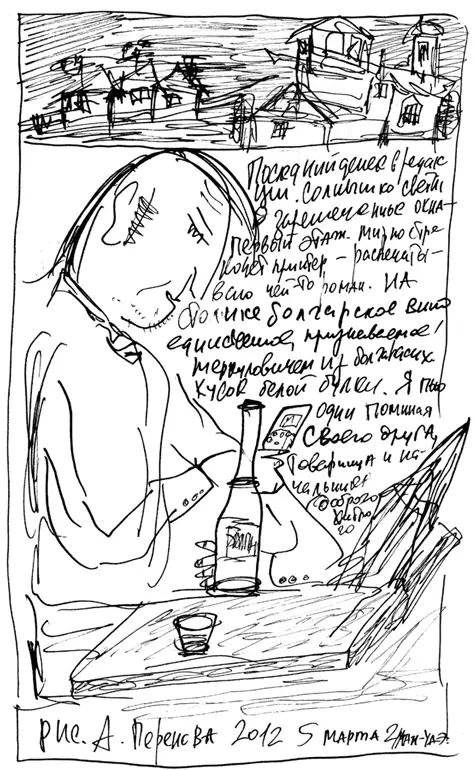 Последний денек в редак
ции. Солнышко светит
в зарешеченные окна -
первый этаж. Мирно стре
кочет принтер - распечаты-
вает чей-то роман. На
столике болгарское вино
единственное, признаваемое
из болгарских
кусок белой булки. Я пью
один поминая
своего друга,
товарища и на-
чальника
доброго
рис. А. 2012 5 марта